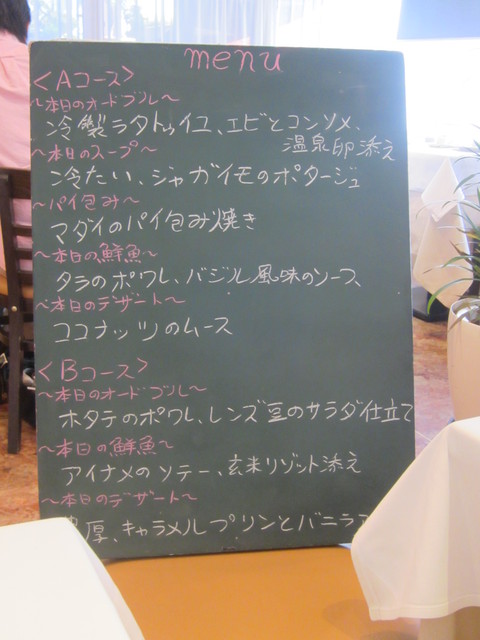 menu
＜Aコース＞
～本日のオードブル～
冷製ラタトゥイユ、エビとコンソメ、
温泉卵添え
～本日のスープ～
冷たい、ジャガイモのポタージュ
～パイ包み～
マダイのパイ包み焼き
～本日の鮮魚～
タラのポワレ、バジル風味のソース
～本日のデザート～
ココナッツのムース
＜Bコース＞
～本日のオードブル～
ホタテのポワレ、レンズ豆のサラダ仕立て
～本日の鮮魚～
アイナメのソテー、玄米リゾット添え
～本日のデザート～
厚、キャラメルプリンとバニラ